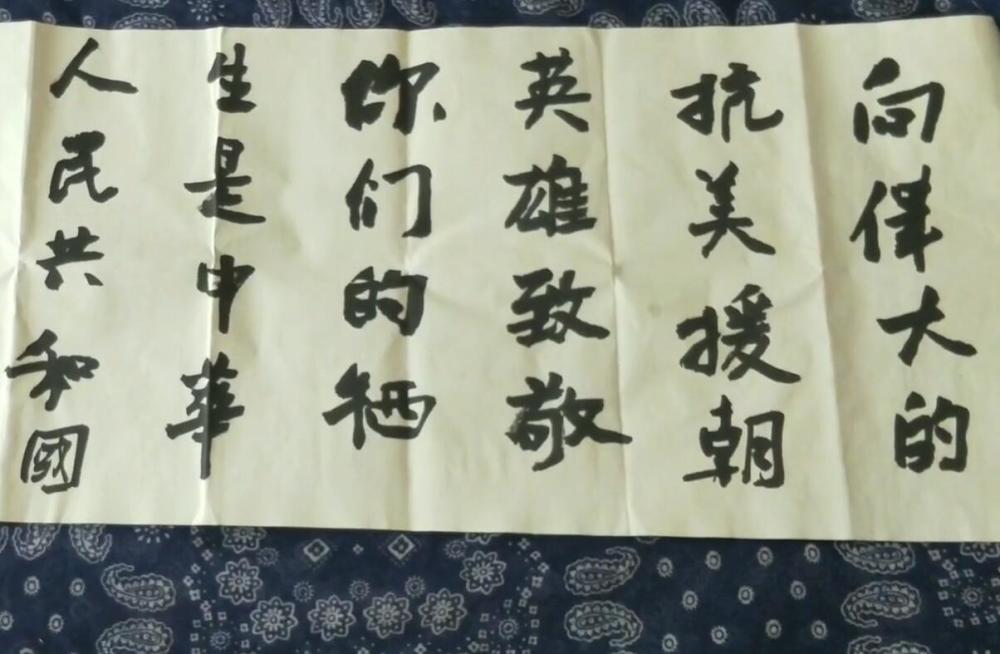 向偉大的
抗美援朝
英雄致敬
你们的牺
生是中華
人民共和國